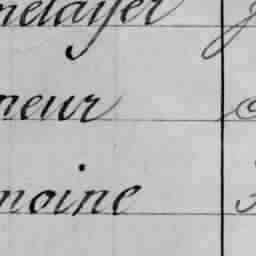 métayer
neur
moine